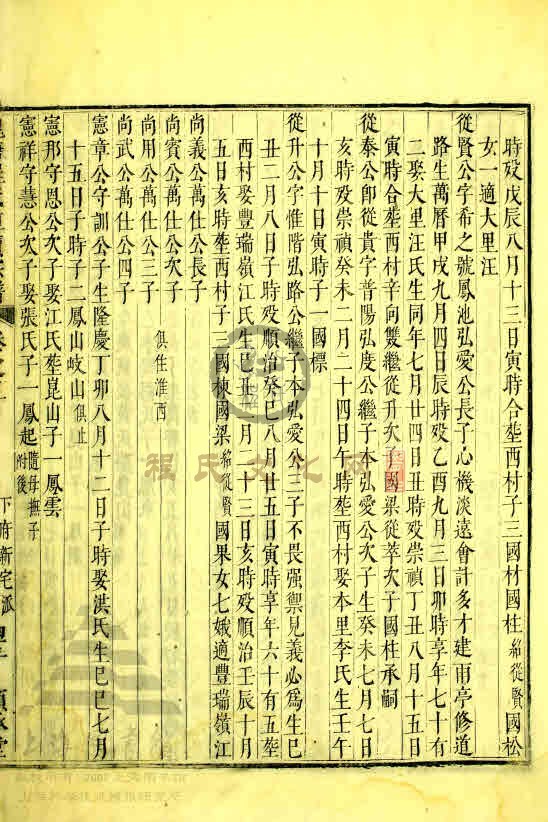 時歿戊辰八月十三日寅時合塟西村子三國材國柱紹從賢國松
女一適大里汪
從賢公字希之號鳳池弘愛公長子心機淡遠會計多才建雨亭修道
路生萬曆甲戌九月四日辰時歿乙酉九月三日卯時享年七十有
二娶大里汪氏生同年七月廿四日丑時歿崇禎丁丑八月十五日
寅時合塟西村辛向雙繼從升次子國梁從萃次子國柱承嗣
從泰公卽從貴字普陽弘度公繼子本弘愛公次子生癸未七月七日
亥時歿崇禎癸未二月二十四日午時塟西村娶本里李氏生壬午
十月十日寅時子一國標
從升公字惟階弘路公繼子本弘愛公三子不畏强禦見義必爲生巳
丑二月八日子時歿順治癸巳八月廿五日寅時享年六十有五塟
西村娶豐瑞嶺江氏生己丑 月二十三日亥時歿順治壬辰十月
五日亥時塟西村子三國棟國梁紹從賢國果女七娥適豐瑞嶺江
尚義公萬仕公長子
尚賓公萬仕公次子
尚用公萬仕公三子
俱住淮西
尚武公萬仕公四子
憲章公守訓公子生隆慶丁卯八月十二日子時娶洪氏生巳巳七月
十五日子時子二鳳山岐山俱止
憲那守恩公次子娶江氏塟崑山子一鳳雲
憲祥守慧公次子娶張氏子一鳳起隨母撫子附後
下府新宅派
程氏文化网